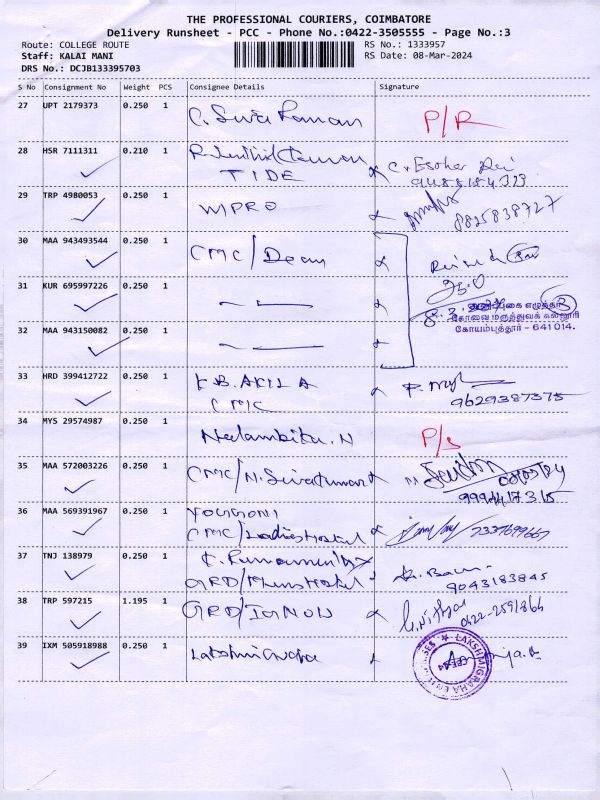 THE PROFESSIONAL COURIERS, COIMBATORE
Delivery Runsheet - PCC - Phone No.:0422-3505555 - Page No.:3
Route: COLLEGE ROUTE
RS No.: 1333957
Staff: KALAI MANI
RS Date: 08-Mar-2024
DRS No.: DCJB133395703
S No Consignment No Weight PCS Consignee Details Signature
27 UPT 2179373 0.250 1 C. Siva Raman P/R
28 HSR 7111311 0.210 1
TIDE
29 TRP 4980053 0.250 1 WIPRO
8825838727
30 MAA 943493544 0.250 1 CMC/Dean
31 KUR 695997226 0.250 1
32 MAA 943150082 0.250 1
கோவை மருத்துவக் கல்லூரி
கோயம்புத்தூர் - 641 014.
33 HRD 399412722 0.250 1 K.B. AKILA
CMC 9629387375
34 MYS 29574987 0.250 1 Neelambika. N P/s
35 MAA 572003226 0.250 1 CMC/N. Sivakumar
36 MAA 569391967 0.250 1
CMC/Ladies Hostel
37 TNJ 138979 0.250 1
GRD/Mens Hostel 9043183845
38 TRP 597215 1.195 1 GRD/IGNOU
0422-2591864
39 IXM 505918988 0.250 1 Lakshmigraha
LAKSHMIGRAHA ENTERPRISES